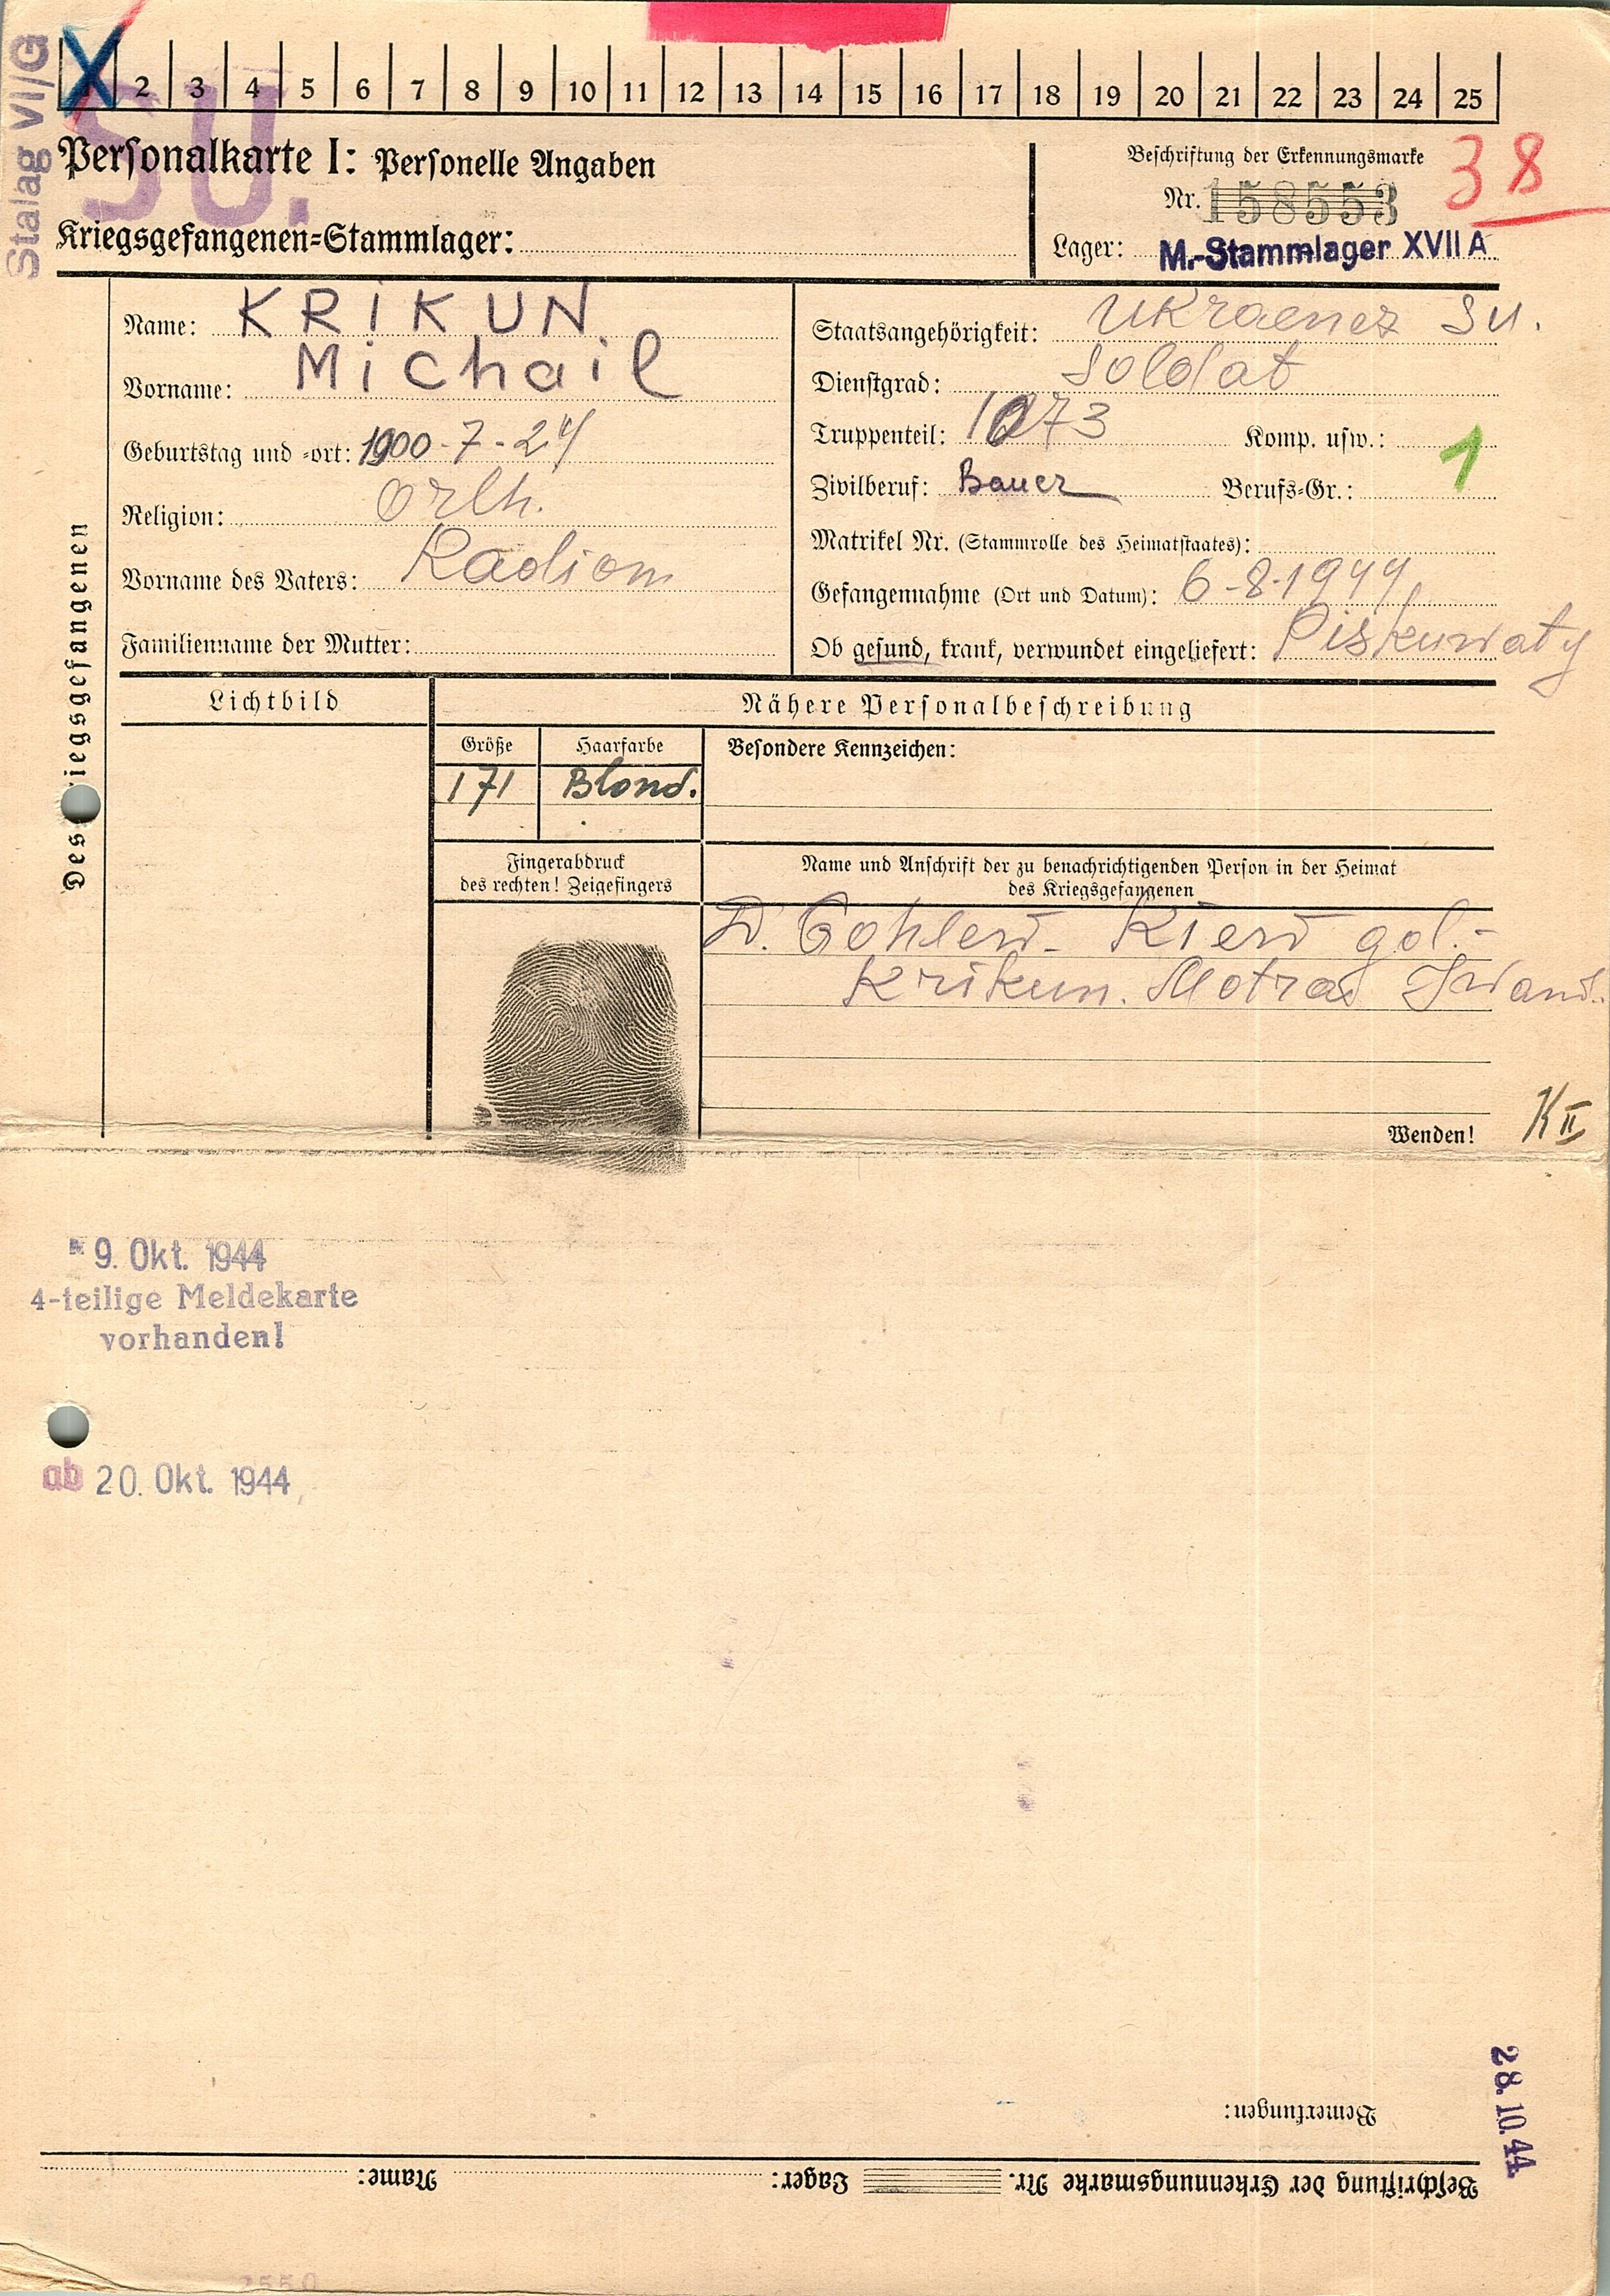 Stalag VI/G
SU.
X 2 3 4 5 6 7 8 9 10 11 12 13 14 15 16 17 18 19 20 21 22 23 24 25
Personalkarte I: Personelle Angaben
Kriegsgefangenen-Stammlager:
Beschriftung der Erkennungsmarke
Nr. 158553
38
Lager: M.-Stammlager XVII A
Des Kriegsgefangenen
Name: KRIKUN
Vorname: Michail
Geburtstag und -ort: 1900-7-24
Religion: Orth.
Vorname des Vaters: Radiom
Familienname der Mutter:
Staatsangehörigkeit: Ukraenez SU.
Dienstgrad: Soldat
Truppenteil: 1073 Komp. usw.:
Zivilberuf: Bauer Berufs-Gr.: 1
Matrikel Nr. (Stammrolle des Heimatstaates):
Gefangennahme (Ort und Datum): 6-8-1944
Ob gesund, krank, verwundet eingeliefert: Piskuwaty
Lichtbild
Nähere Personalbeschreibung
Größe Haarfarbe Besondere Kennzeichen:
171 Blond.
Fingerabdruck
des rechten! Zeigefingers
Name und Anschrift der zu benachrichtigenden Person in der Heimat
des Kriegsgefangenen
D. Kiew
Krikun. Motra
Wenden!
K II
9. Okt. 1944
4-teilige Meldekarte
vorhanden!
ab 20. Okt. 1944
28.10.44
Bemerkungen:
Beschriftung der Erkennungsmarke Nr. Lager: Name: